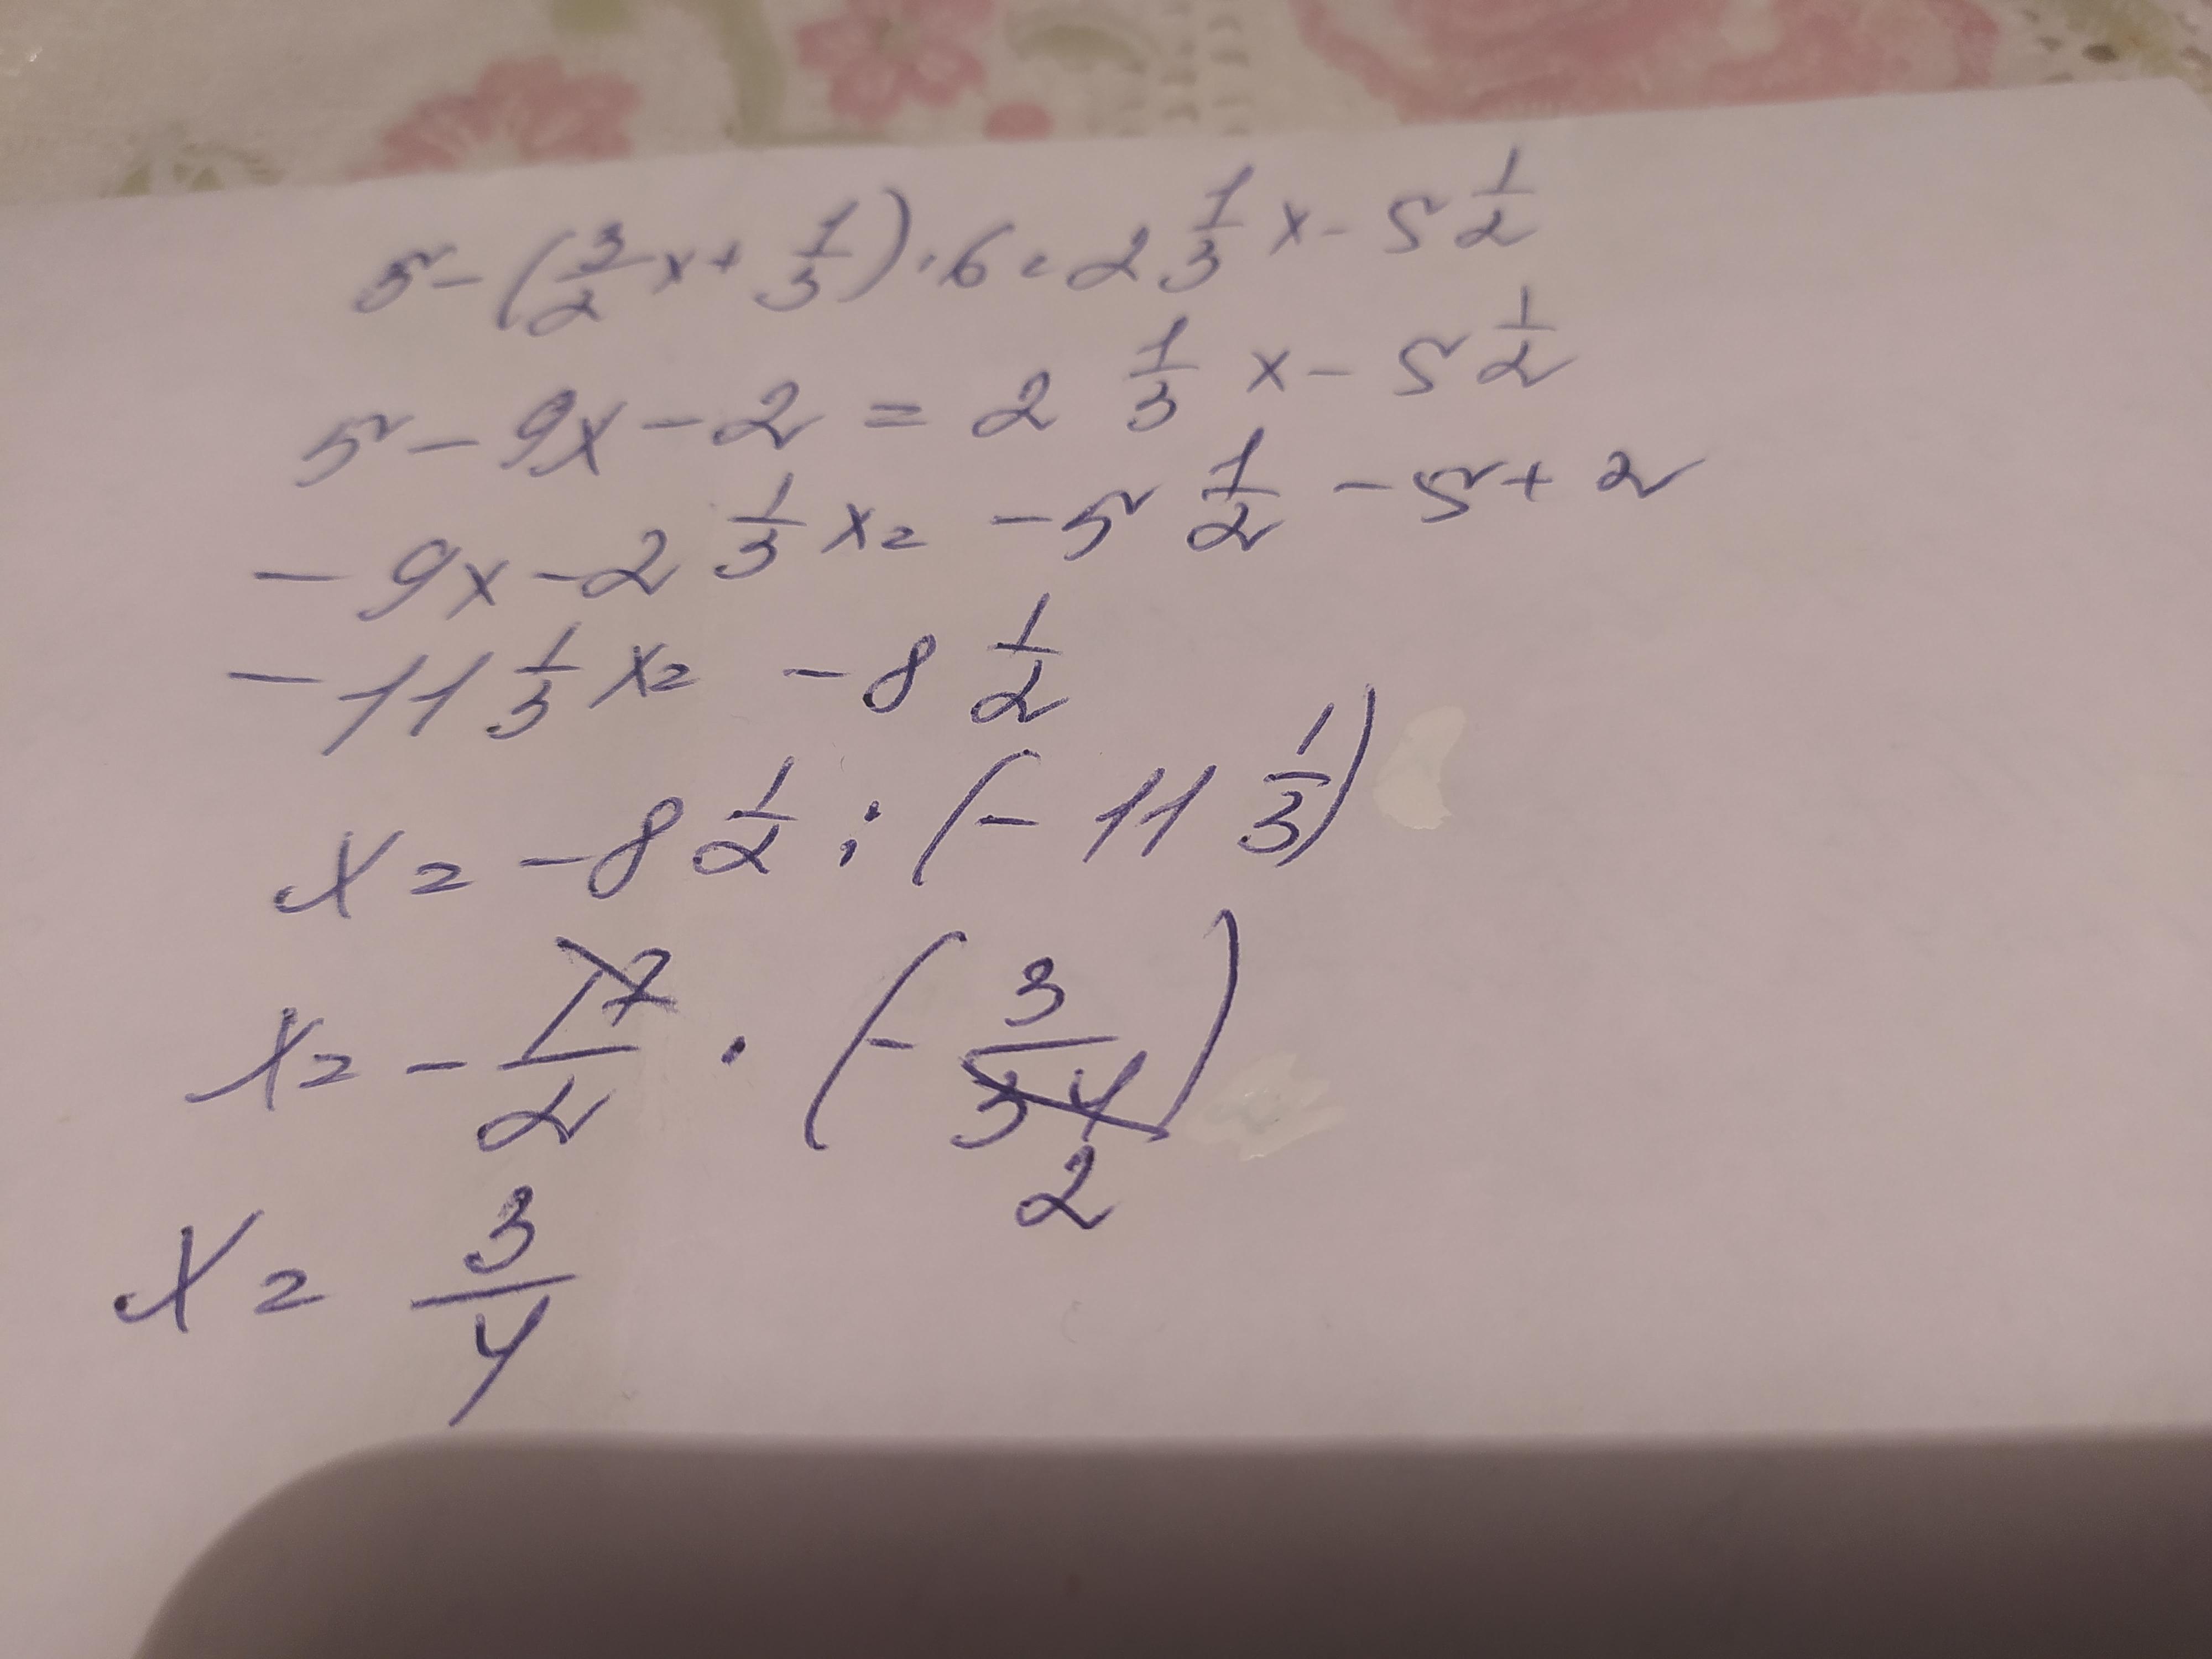 5 - (3/2 x + 1/3) · 6 = 2 1/3 x - 5 1/2
5 - 9x - 2 = 2 1/3 x - 5 1/2
- 9x - 2 1/3 x = - 5 1/2 - 5 + 2
- 11 1/3 x = - 8 1/2
x = - 8 1/2 : (- 11 1/3)
x = - 17/2 · (- 3/34)
2
x = 3/4